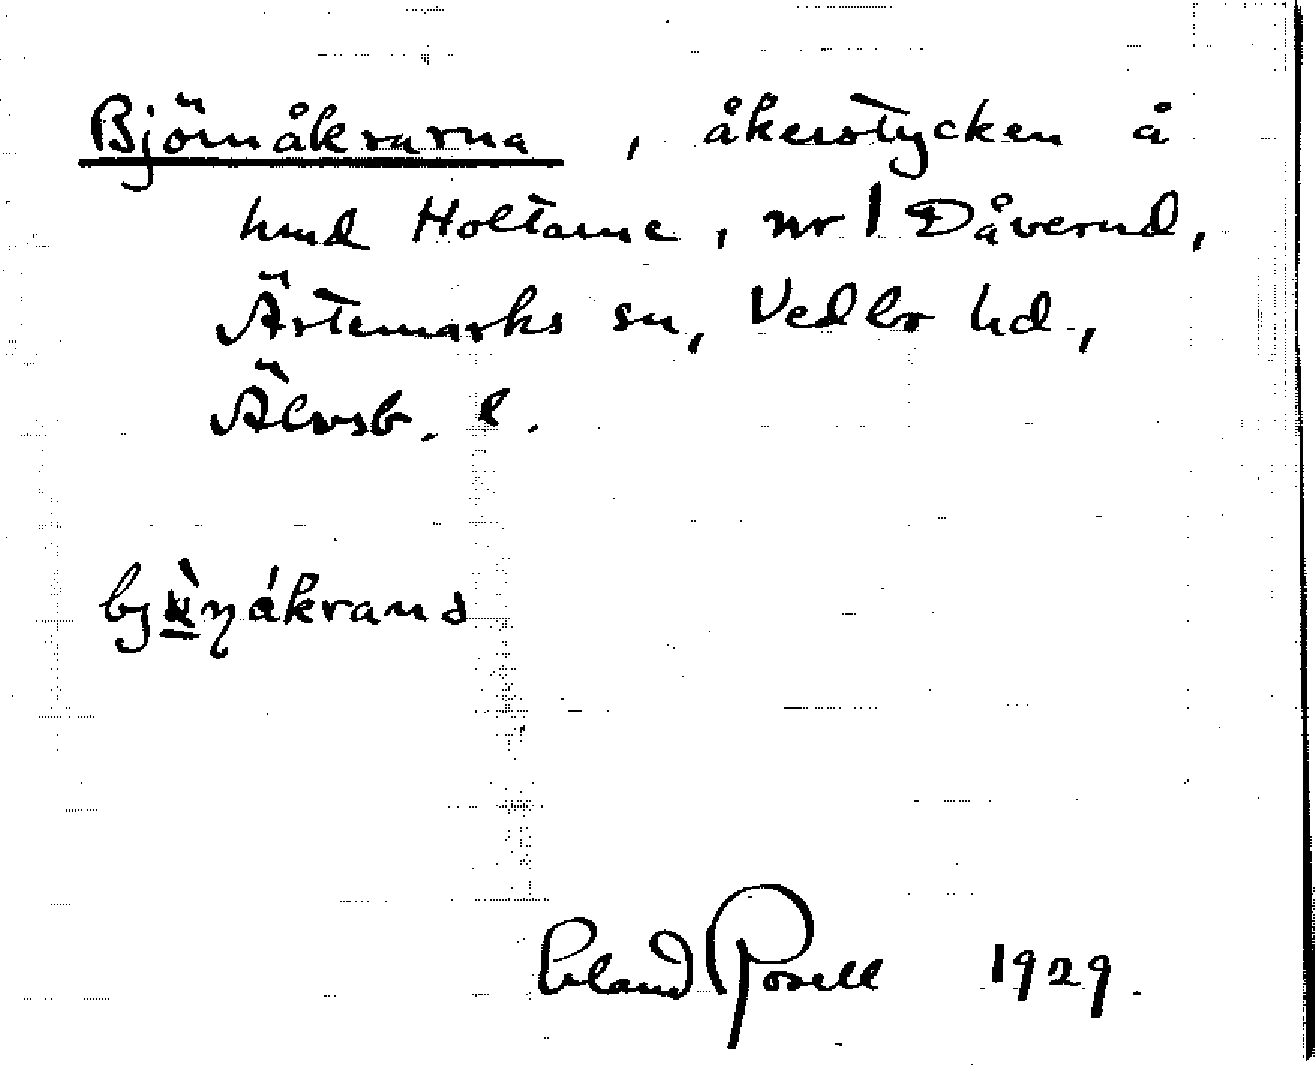 Björnåkrarna, åkerstycken å
hmd Holtarne, nr 1 Dåverud,
Ärtemarks sn, Vedbo hd,
Älvsb. l.
Erland Rosell 1929.